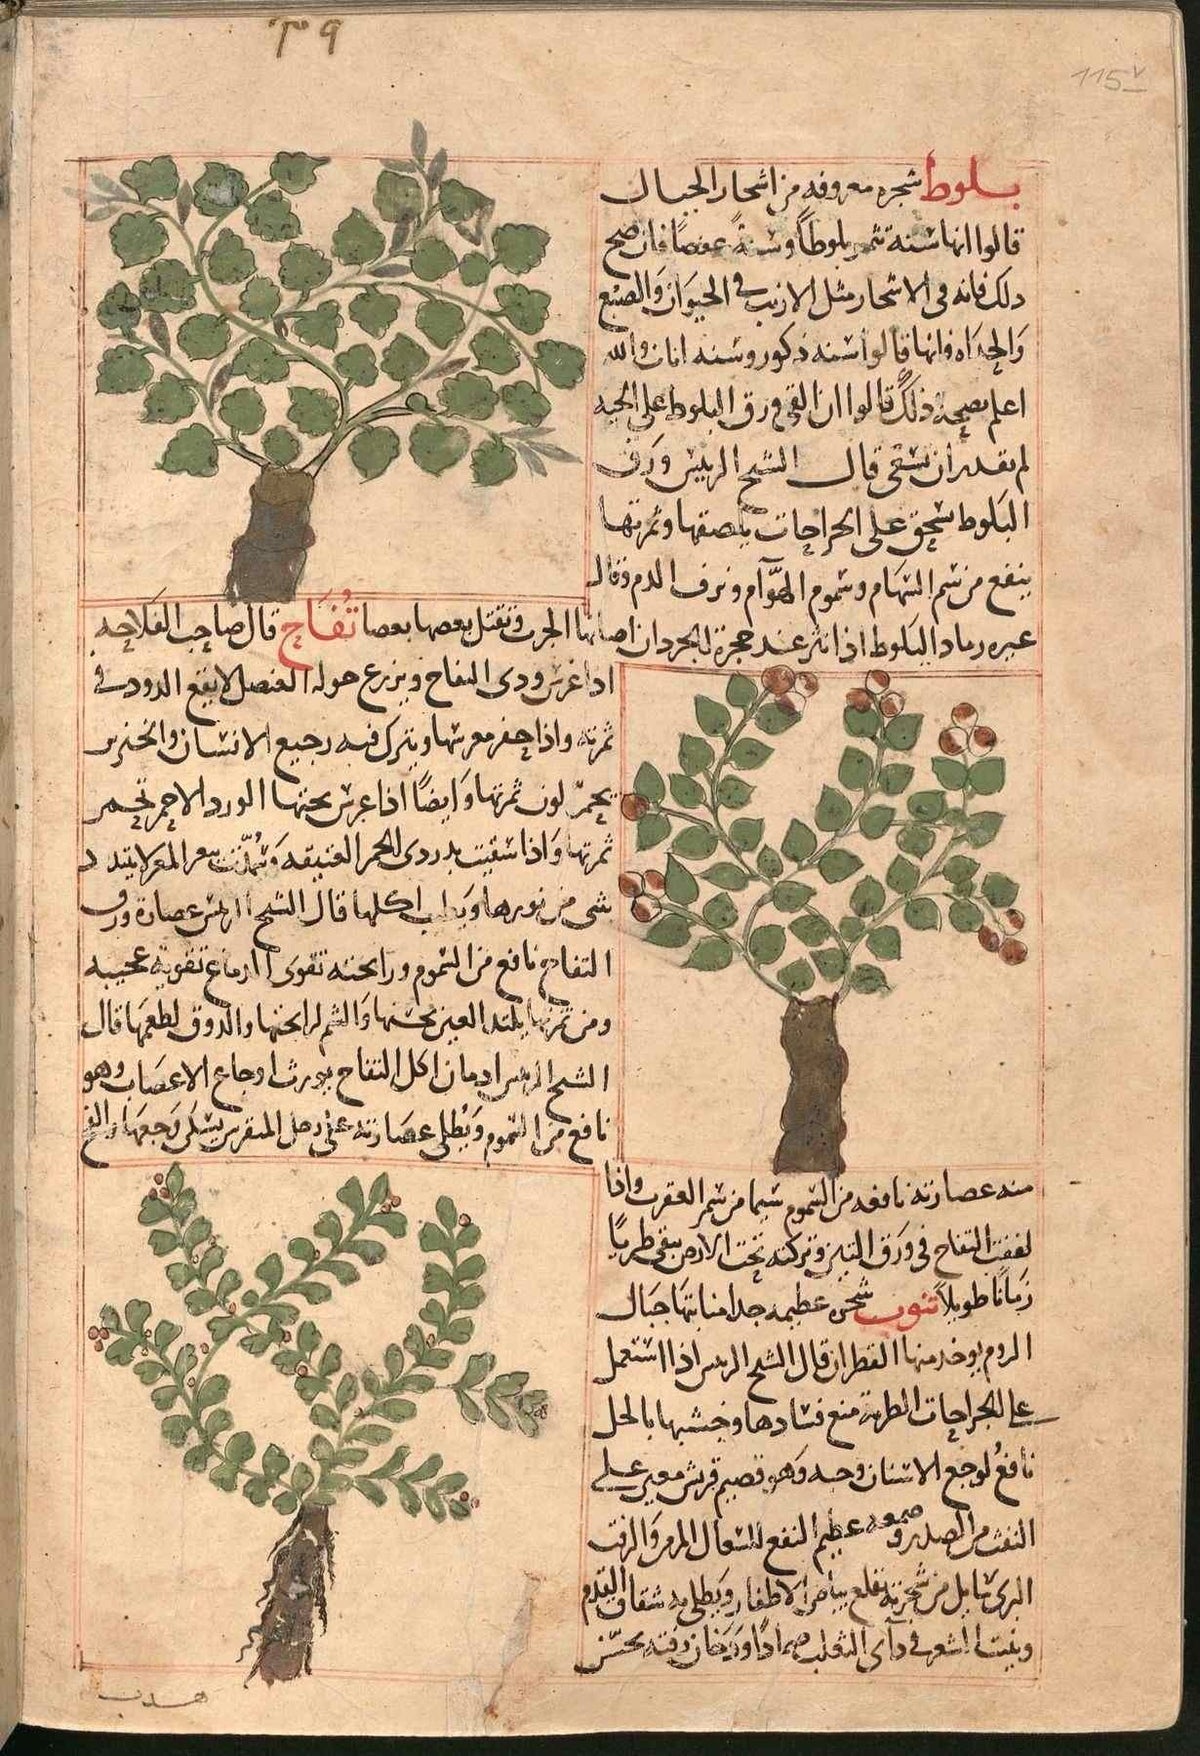 115v
بلوط شجره معروفه من اشجار الجبال
قالوا انها سنة تثمر بلوطاً وسنةً عفصاً فان صح
ذلك فانه فى الاشجار مثل الارنب فى الحيوان والضبع
فانها قالوا سنه ذكور وسنه اناث والله
اعلم بصحة ذلك قالوا ان القى ورق البلوط على الحيه
لم تقدر ان تسعى قال الشيخ الرييس ورق
البلوط يسحق على الجراحات يلصقها وثمرتها
ينفع من سم السهام وسموم الهوآم ونزف الدم وقال
غيره رماد البلوط اذا نثر عند حجرة الجردان اصابها الجرب وتقتل بعضها بعضا
تُفاح قال صاحب الفلاحه
اذا غرس ودى التفاح ويزرع حوله العنصل لا يقع الدود فى
ثمرته واذا حفر مغرسها ويترك فيه رجيع الانسان والخنزير
يحمرّ لون ثمرتها وايضاً اذا غرس تحتها الورد الاحمر تحمر
ثمرتها واذا سقيت بدردى الخمر العتيقه وسُمّدت ببعر المعز لا ينتثر
شى من نورها ويطيب اكلها قال الشيخ الرئيس عصارة ورق
التفاح نافع من السموم ورايحته تقوى الدماغ تقوية عجيبه
ومن ثمرتها يلتذ العين بحسنها والشم لرايحتها والذوق لطعمها قال
الشيخ الرئيس ادمان اكل التفاح يورث اوجاع الاعصاب وهو
نافع من السموم ويُطلى عصارته على رجل المنقرس يسكن وجعها والفج
منه عصارته نافعه من السموم سيما من سم العقرب واذا
لففت التفاح فى ورق التين وتركته تحت الارض يبقى طريًا
زمانا طويلاً تنوب شجره عظيمه جدا منابتها جبال
الروم يوخذ منها القطران قال الشيخ الرئيس اذا استعمل
على الجراحات الطرية منع فسادها وخشبها بالخل
نافع لوجع الاسنان وحبه وهو قضيم قريش معين على
النفث من الصدر وصمغه عظيم النفع للسعال المزمن والزفت
البرى سايل من شجرته يقلع بياض الاظفار ويطلى به شقاق القدم
وينبت الشعر فى دآى الثعلب ضمادًا ودخان زفته يحسّن
هدب